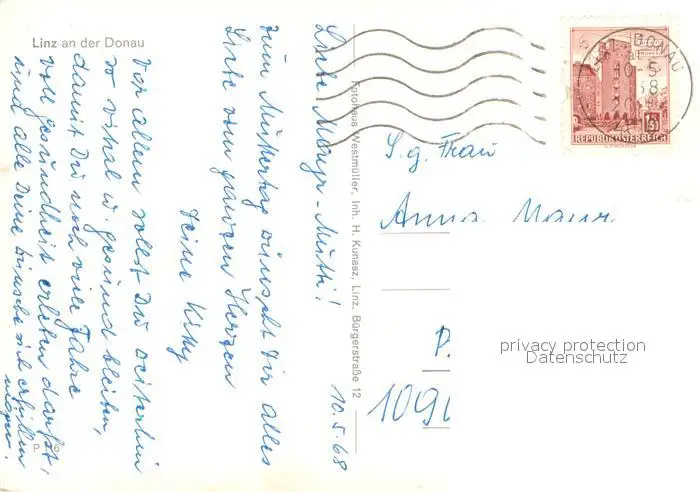 Linz an der Donau
10.5.68
Liebe Mayr-Mutti!
Zum Muttertag wünscht Dir alles
Liebe vom ganzen Herzen
Deine Kitty
Vor allem sollst Du weiterhin
so vital u. gesund bleiben,
damit Du noch viele Jahre
voll Gesundheit erleben darfst,
und alle Deine Wünsche sich erfüllen
mögen.
Fotohaus Westmüller, Inh. H. Kunasz, Linz, Bürgerstraße 12
DONAU
10-5
68
REPUBLIK ÖSTERREICH
S. g. Frau
Anna Mayr
P.
1090
privacy protection
Datenschutz